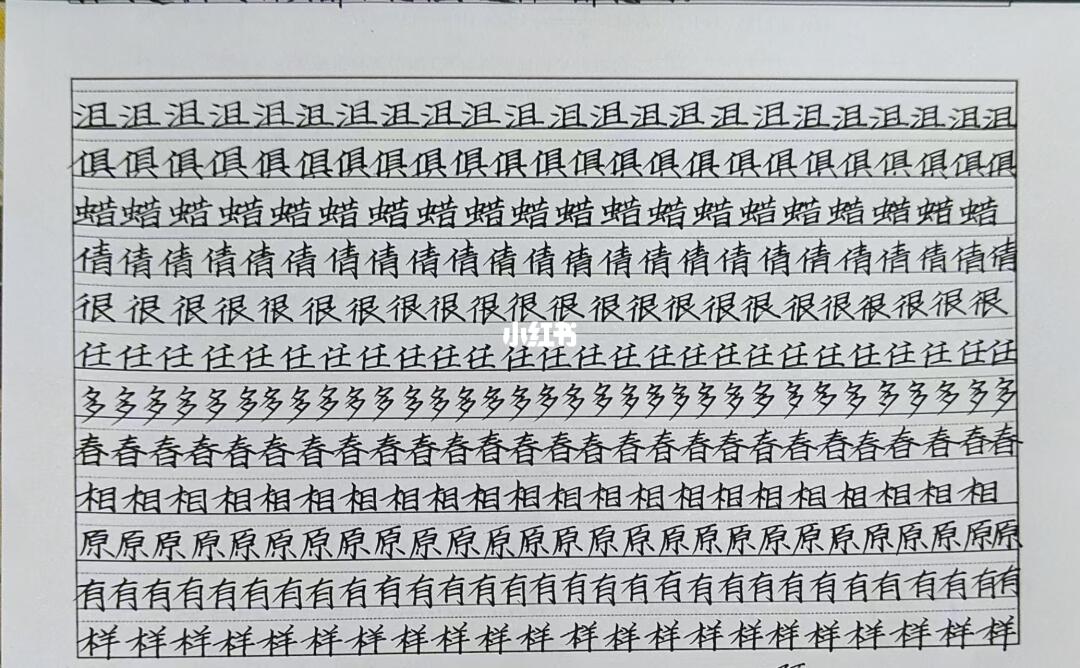 沮沮沮沮沮沮沮沮沮沮沮沮沮沮沮沮沮沮沮沮沮沮沮
俱俱俱俱俱俱俱俱俱俱俱俱俱俱俱俱俱俱俱俱俱俱俱俱
蜡蜡蜡蜡蜡蜡蜡蜡蜡蜡蜡蜡蜡蜡蜡蜡蜡蜡蜡蜡
倩倩倩倩倩倩倩倩倩倩倩倩倩倩倩倩倩倩倩倩倩倩倩倩
很很很很很很很很很很很很很很很很很很很很很很很
小红书
任任任任任任任任任任任任任任任任任任任任任任任任任任
多多多多多多多多多多多多多多多多多多多多多多多多多多多多多多多多多
春春春春春春春春春春春春春春春春春春春春春春春春春春春
相相相相相相相相相相相相相相相相相相相相相相
原原原原原原原原原原原原原原原原原原原原原原原原原原原
有有有有有有有有有有有有有有有有有有有有有有有有有有有有有
样样样样样样样样样样样样样样样样样样样样样样